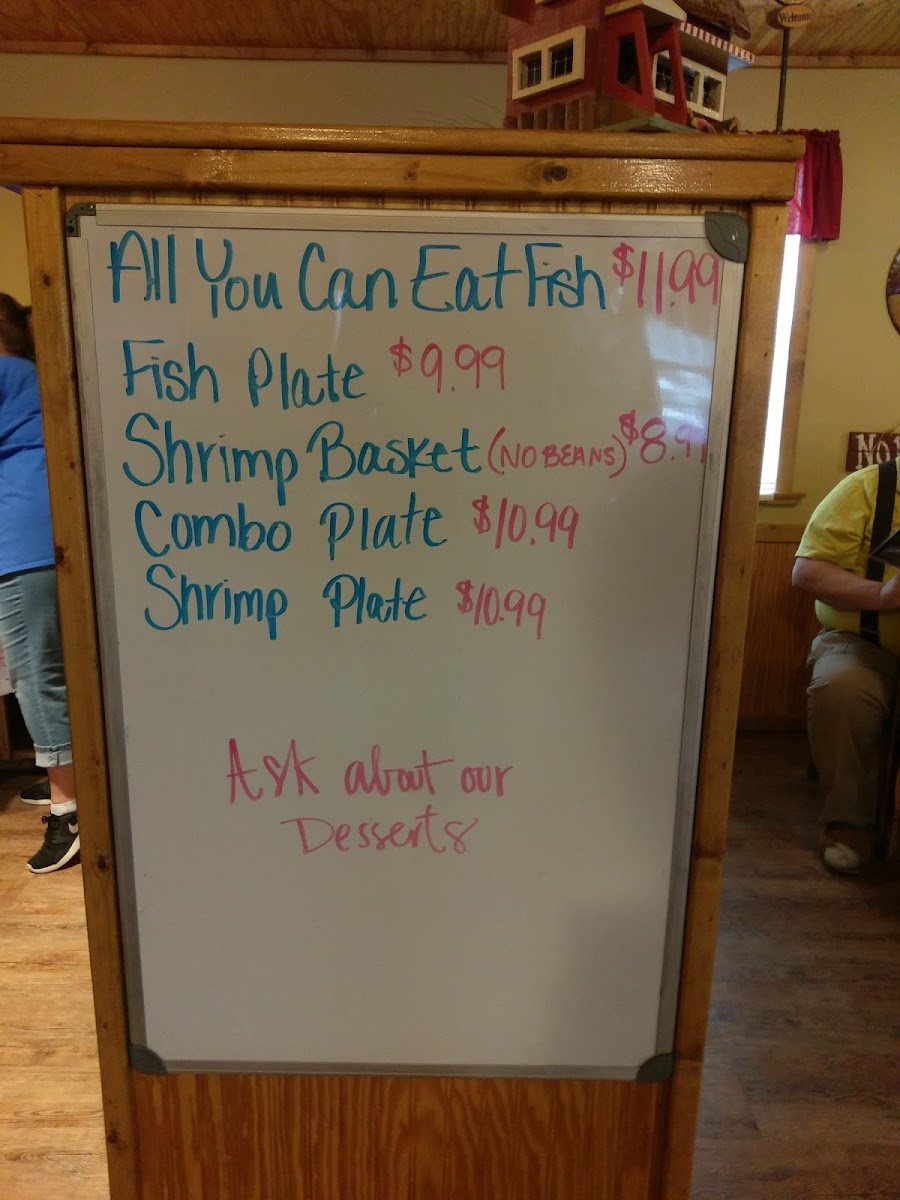 Welcome
All You Can Eat Fish $11.99
Fish Plate $9.99
Shrimp Basket (NO BEANS) $8.99
Combo Plate $10.99
Shrimp Plate $10.99
Ask about our
Desserts